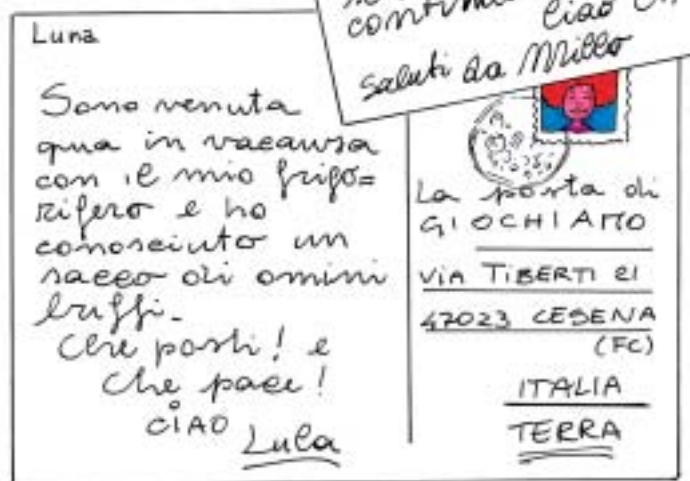 continu
Ciao
Saluti da Millo
Luna
Sono venuta
qua in vacansa
con il mio frigo=
rifero e ho
conosciuto un
sacco di omini
buffi.
Che posti! e
che pace!
CIAO
Lula
La posta di
GIOCHIAMO
VIA TIBERTI 21
47023 CESENA
(FC)
ITALIA
TERRA